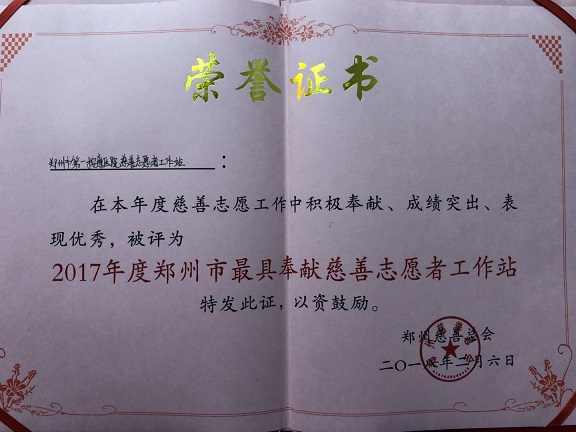 荣誉证书
郑州市第一人民医院慈善志愿者工作站：
在本年度慈善志愿工作中积极奉献、成绩突出、表
现优秀，被评为
2017年度郑州市最具奉献慈善志愿者工作站
特发此证，以资鼓励。
郑州慈善总会
二〇一八年二月六日